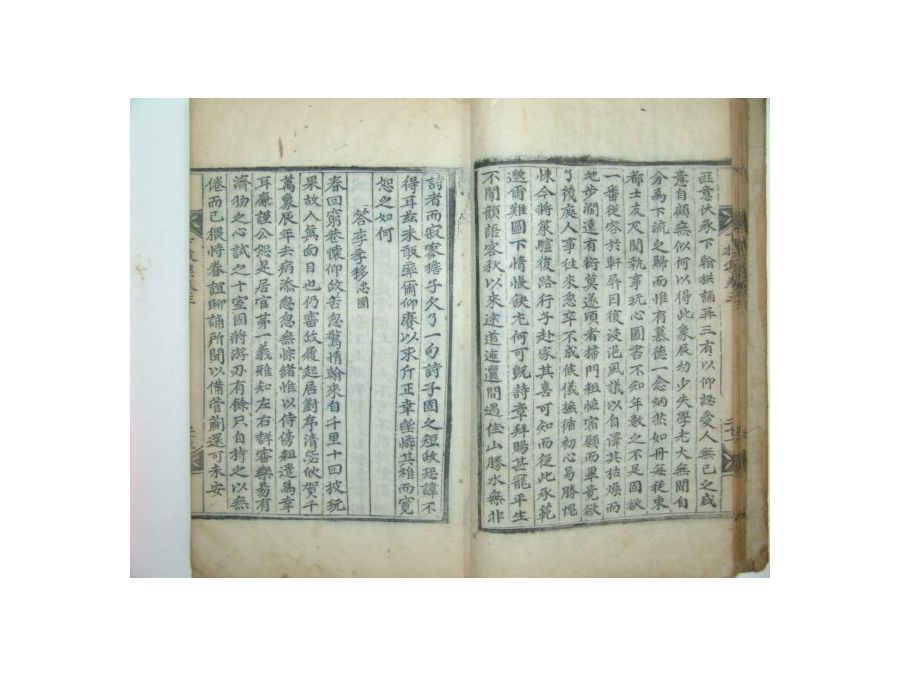 匪意伏承下翰拱誦再三有以仰認愛人無已之盛
意自顧無似何以得此象辰幼少失學老大無聞自
分爲下流之歸而惟有慕德一念炳然如丹每從東
都士友久聞執事玩心圖書不知年數之不足固欲
一番從容於軒屛日復浸浥風議以自澤其枯燥而
地步濶遠有衎莫遂頃者掃門粗恒宿願而畢竟欲
了幾處人事往來忽卒不成候儀撫循初心易勝愧
悚今將策驢復路行子赴家其喜可知而從此承範
邈爾難圖下情悵缺尤何可旣詩章拜賜甚寵平生
不閒韻語客秋以來途道迍邅間遇佳山勝水無非
詩者而寂寥撘子欠了一句詩子固之短政恐諱不
得耳玆未敢率爾仰賡以求斤正幸望憐其稚而寬
恕之如何
答李季移忠國
春回窮巷懷仰政苦忽驚情翰來自千里十回披玩
果故人眞面目也仍審政履起居對序淸毖倣賀千
萬象辰年去病添忽忽無悰緖惟以侍傍粗遣爲幸
耳廉謹公恕是居官第一義雅知左右詳審樂易有
濟物之心試之十室固將游刃有餘只自持之以無
倦而已猥恃眷誼聊誦所聞以備菅蒯還可未安